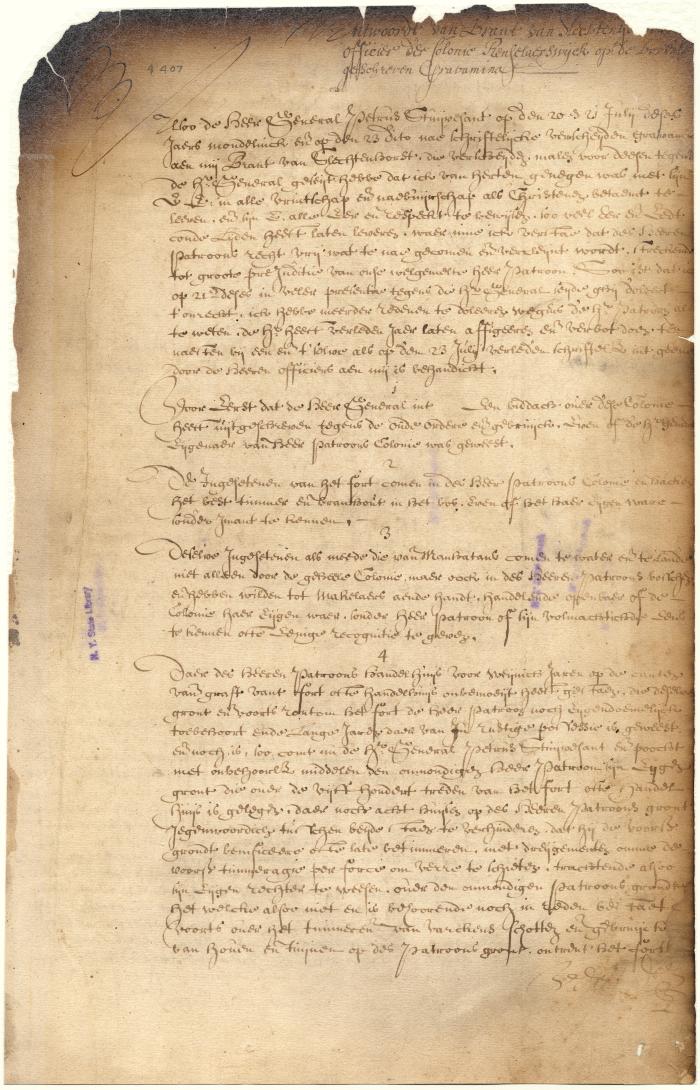 Antwoordt van Brant van Slechtenh
officier der Colonie Renselaerswijck op de
geschreven Gravamina
4407
Alsoo de Heer Generael Petrus Stuijvesant op den 20 & 21 Julij deses
Jaers mondelinck en op den 23 dito nae schriftelijcke verscheijden Gravam
aen mij Brant van Slechtenhorst, die verscheijden malen voor desen tegen
de Hr Generael geseijt hebbe dat ick van herten genegen was met sijn
E. in alle vrintschap en naebuijrschap als Christenen betaemt te
leeven, en sijn E. alle eer en respeckt te bewijsen, soo veel der en Eedt
conde lijden heeft laten leveren, waer mine ick verstae dat des Heeren
Patroons recht vrij wat te nae gecomen en vercleijnt wordt, streckende
tot groote preiuditie van onse welgemelte Heer Patroon. Soo ist dat
op 21 deses in veler presentie tegens de Hr Generael seijde ghij doleert
t'onrecht, ick hebbe meerder redenen te doleeren wegens de Hr Patroon al
te weten, de Hr heeft verleden Jaer laten affigeeren en verbot doen, ten
naesten bij een en t'selve als op den 23 Julij verleden schriftel
door de Heeren officiers aen mij is behandicht.
1
Voor Eerst dat de Heer Generael int Een biddach over dese Colonie
heeft uijtgeschreven tegens de oude ordere en gebruijck, Even of de Hr
Eijgenaer van Heer Patroons Colonie was geweest.
2
De Ingesetenen van het fort comen in des Heer Patroons Colonie en hacken
het best timmer en brandhout in het bos, even of het haer Eijgen ware
sonder Jmant te kennen,
3
Deselve Ingesetenen als meede die van Manhatans comen te water en te lande
niet alleen door de geheele Colonie, maer ooch in des Heeren Patroons
en hebben wilden tot Makelaers aende handt, handelende openbaer of de
Colonie haer Eijgen waer, sonder Heer Patroon of sijn volmachtichde
te kennen ofte Eenige recognitie te geven.
4
Daer des Heeren Patroons handelhuijs voor weijnich Jaren op de canten
van graft vant fort ofte handelhuijs onbemoeijt heeft gestaen, die deselve
gront en voorts rontom het fort de Heer Patroon noch eijgendoemelijck
toebehoort ende lange Jaren daer van in rustige possessie is geweest
en noch is, soo comt nu de Hr Generael Petrus Stuijvesant en poocht
met onbehoorl: middelen den onmondigen Heer Patroon sijn Eijgen
gront die over de vijff hondert treden van het fort ofte handel
huijs is gelegen, daer noch acht huijsen op des Heeren Patroons gront
Jegenwoordich tusschen beijde staen te verhinderen, dat hij die voors
grondt benificeere ofte late betimmeren, met dreijgementen omme de
voors timmeragie per force om verre te schieten, trachtende alsoo
sijn Eijgen rechter te weesen, over den onmondigen Patroons gronden
het welcke alsoo niet en is behoorende noch in reden bestaet
Voorts over het timmeren van varckens schotten en gebruijck
van hoven en tuijnen op des Patroons gront, ontrent het fort
N. Y. State Library